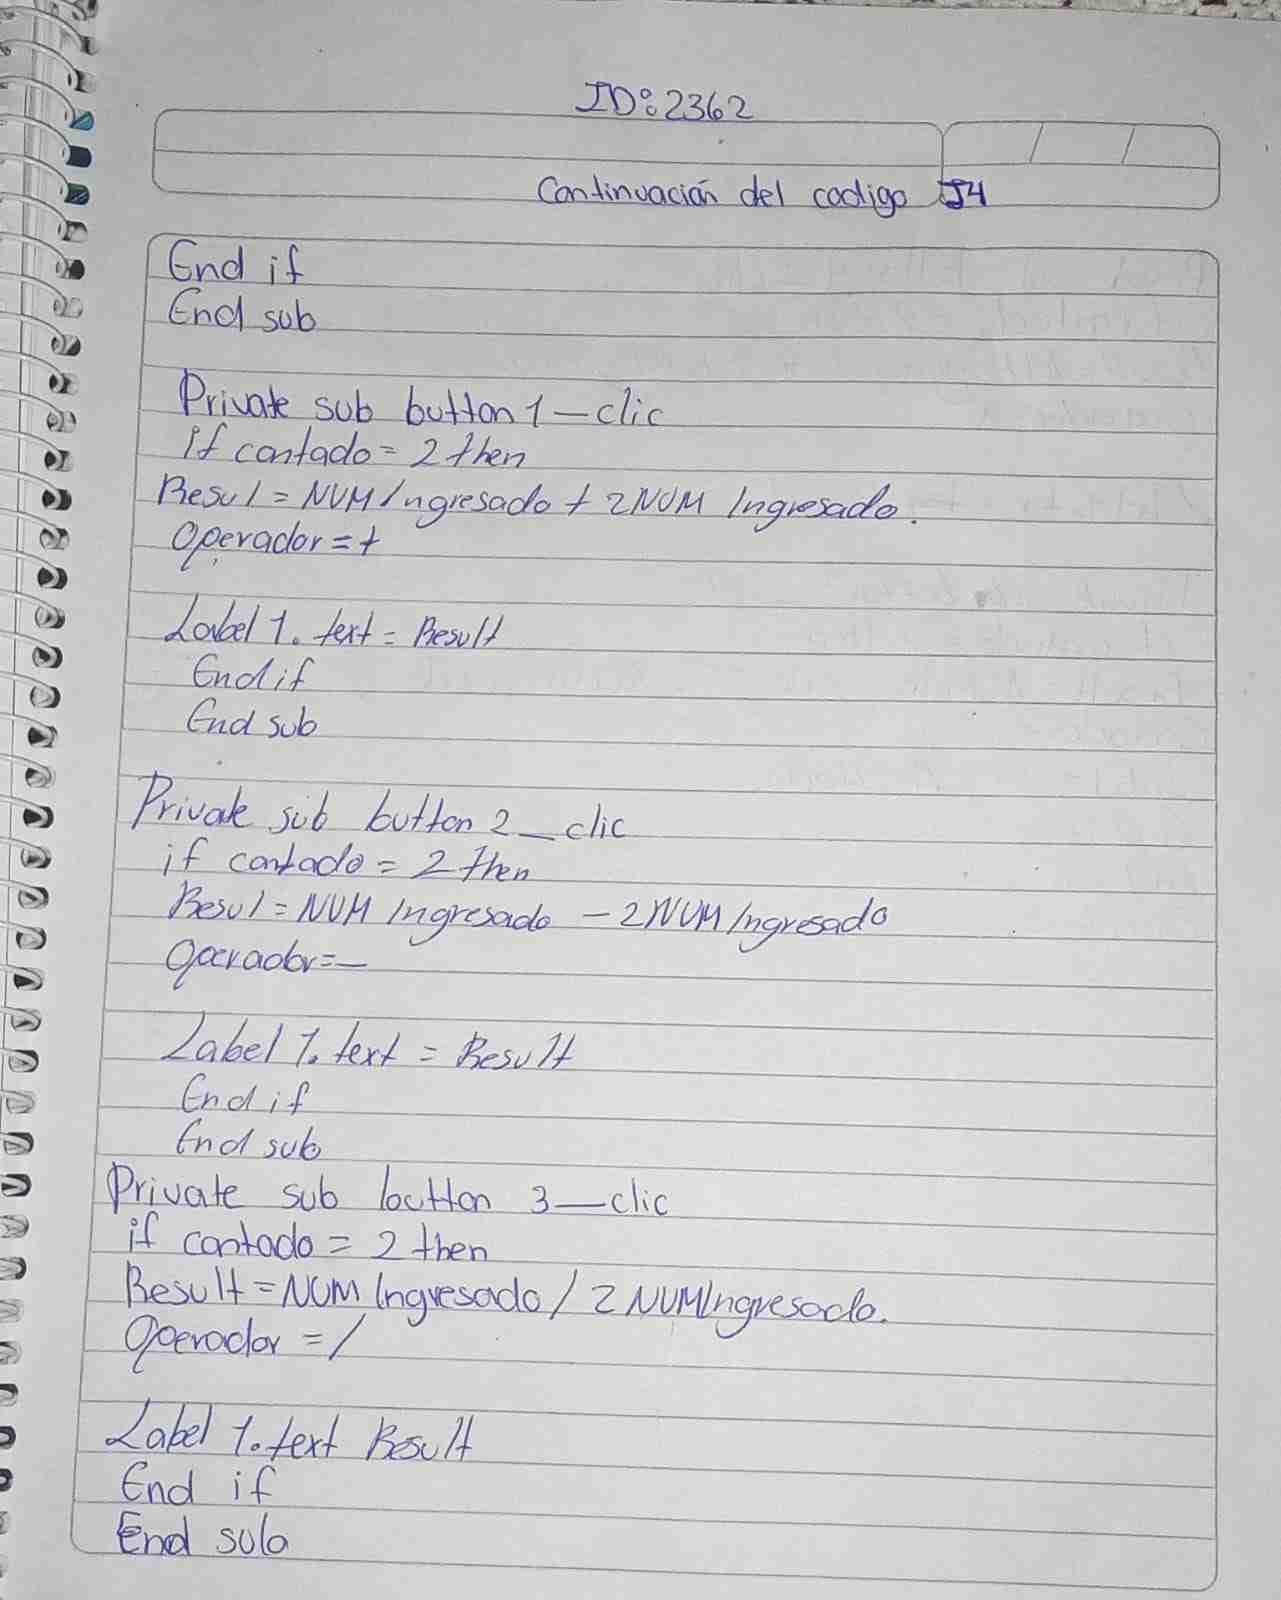 ID: 2362
Continuación del codigo J4
End if
End sub
Private sub button 1_clic
if contado = 2 then
Resul = NUM Ingresado + 2NUM Ingresado.
Operador = +
Label 1. text = Result
End if
End sub
Private sub button 2_clic
if contado = 2 then
Resul = NUM Ingresado - 2NUM Ingresado
Operador = -
Label 1. text = Result
End if
End sub
Private sub button 3_clic
if contado = 2 then
Result = NUM Ingresado / 2 NUM Ingresado.
Operador = /
Label 1. text Result
End if
End sub